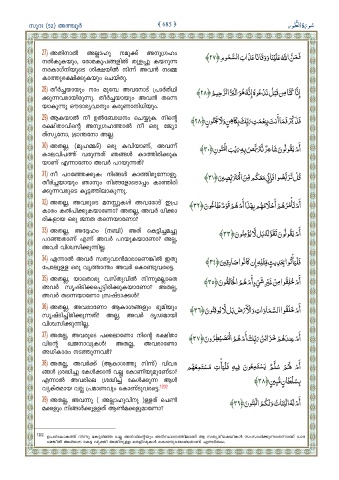 സൂറ: (52) അത്ത്വൂർ
﴾ 685 ﴿
سُورَةُ الطُّورِ
27) അതിനാൽ അല്ലാഹു നമുക്ക് അനുഗ്രഹം
നൽകുകയും, രോമകൂപങ്ങളിൽ തുളച്ചു കയറുന്ന
നരകാഗ്നിയുടെ ശിക്ഷയിൽ നിന്ന് അവൻ നമ്മെ
കാത്തുരക്ഷിക്കുകയും ചെയ്തു.
فَمَنَّ اللَّهُ عَلَيْنَا وَوَقَانَا عَذَابَ السَّمُومِ ﴿٢٧﴾
28) തീർച്ചയായും നാം മുമ്പേ അവനോട് പ്രാർത്ഥി
ക്കുന്നവരായിരുന്നു. തീർച്ചയായും അവൻ തന്നെ
യാകുന്നു ഔദാര്യവാനും കരുണാനിധിയും.
إِنَّا كُنَّا مِنْ قَبْلُ نَدْعُوهُ إِنَّهُ هُوَ الْبَرُّ الرَّحِيمُ ﴿٢٨﴾
29) ആകയാൽ നീ ഉൽബോധനം ചെയ്യുക. നിന്റെ
രക്ഷിതാവിന്റെ അനുഗ്രഹത്താൽ നീ ഒരു ജ്യോ
ത്സ്യനോ, ഭ്രാന്തനോ അല്ല.
فَذَكِّرْ فَمَا أَنْتَ بِنِعْمَتِ رَبِّكَ بِكَاهِنٍ وَلَا مَجْنُونٍ ﴿٢٩﴾
30) അതല്ല, (മുഹമ്മദ്) ഒരു കവിയാണ്, അവന്ന്
കാലവിപത്ത് വരുന്നത് ഞങ്ങൾ കാത്തിരിക്കുക
യാണ് എന്നാണോ അവർ പറയുന്നത്?
أَمْ يَقُولُونَ شَاعِرٌ نَتَرَبَّصُ بِهِ رَيْبَ الْمَنُونِ ﴿٣٠﴾
31) നീ പറഞ്ഞേക്കുക: നിങ്ങൾ കാത്തിരുന്നോളൂ.
തീർച്ചയായും ഞാനും നിങ്ങളോടൊപ്പം കാത്തിരി
ക്കുന്നവരുടെ കൂട്ടത്തിലാകുന്നു.
قُلْ تَرَبَّصُوا فَإِنِّي مَعَكُمْ مِنَ الْمُتَرَبِّصِينَ ﴿٣١﴾
32) അതല്ല, അവരുടെ മനസ്സുകൾ അവരോട് ഇപ്ര
കാരം കൽപിക്കുകയാണോ? അതല്ല, അവർ ധിക്കാ
രികളായ ഒരു ജനത തന്നെയാണോ?
أَمْ تَأْمُرُهُمْ أَحْلَامُهُمْ بِهَذَا أَمْ هُمْ قَوْمٌ طَاغُونَ ﴿٣٢﴾
33) അതല്ല, അദ്ദേഹം (നബി) അത് കെട്ടിച്ചമച്ചു
പറഞ്ഞതാണ് എന്ന് അവർ പറയുകയാണോ? അല്ല,
അവർ വിശ്വസിക്കുന്നില്ല.
أَمْ يَقُولُونَ تَقَوَّلَهُ بَلْ لَا يُؤْمِنُونَ ﴿٣٣﴾
34) എന്നാൽ അവർ സത്യവാൻമാരാണെങ്കിൽ ഇതു
പോലുള്ള ഒരു വൃത്താന്തം അവർ കൊണ്ടുവരട്ടെ.
فَلْيَأْتُوا بِحَدِيثٍ مِثْلِهِ إِنْ كَانُوا صَادِقِينَ ﴿٣٤﴾
35) അതല്ല, യാതൊരു വസ്തുവിൽ നിന്നുമല്ലാതെ
അവർ സൃഷ്ടിക്കപ്പെട്ടിരിക്കുകയാണോ? അതല്ല,
അവർ തന്നെയാണോ സ്രഷ്ടാക്കൾ?
أَمْ خُلِقُوا مِنْ غَيْرِ شَيْءٍ أَمْ هُمُ الْخَالِقُونَ ﴿٣٥﴾
36) അതല്ല, അവരാണോ ആകാശങ്ങളും ഭൂമിയും
സൃഷ്ടിച്ചിരിക്കുന്നത്? അല്ല, അവർ ദൃഢമായി
വിശ്വസിക്കുന്നില്ല.
أَمْ خَلَقُوا السَّمَاوَاتِ وَالْأَرْضَ بَلْ لَا يُوقِنُونَ ﴿٣٦﴾
37) അതല്ല, അവരുടെ പക്കലാണോ നിന്റെ രക്ഷിതാ
വിന്റെ ഖജനാവുകൾ! അതല്ല, അവരാണോ
അധികാരം നടത്തുന്നവർ?
أَمْ عِنْدَهُمْ خَزَائِنُ رَبِّكَ أَمْ هُمُ الْمُصَيْطِرُونَ ﴿٣٧﴾
38) അതല്ല, അവർക്ക് (ആകാശത്തു നിന്ന്) വിവര
ങ്ങൾ ശ്രദ്ധിച്ചു കേൾക്കാൻ വല്ല കോണിയുമുണ്ടോ?
എന്നാൽ അവരിലെ ശ്രദ്ധിച്ച് കേൾക്കുന്ന ആൾ
വ്യക്തമായ വല്ല പ്രമാണവും കൊണ്ടുവരട്ടെ.
أَمْ لَهُمْ سُلَّمٌ يَسْتَمِعُونَ فِيهِ فَلْيَأْتِ مُسْتَمِعُهُمْ
بِسُلْطَانٍ مُبِينٍ ﴿٣٨﴾
39) അതല്ല, അവന്നു ( അല്ലാഹുവിനു )ള്ളത് പെൺ
മക്കളും നിങ്ങൾക്കുള്ളത് ആൺമക്കളുമാണോ?
أَمْ لَهُ الْبَنَاتُ وَلَكُمُ الْبَنُونَ ﴿٣٩﴾